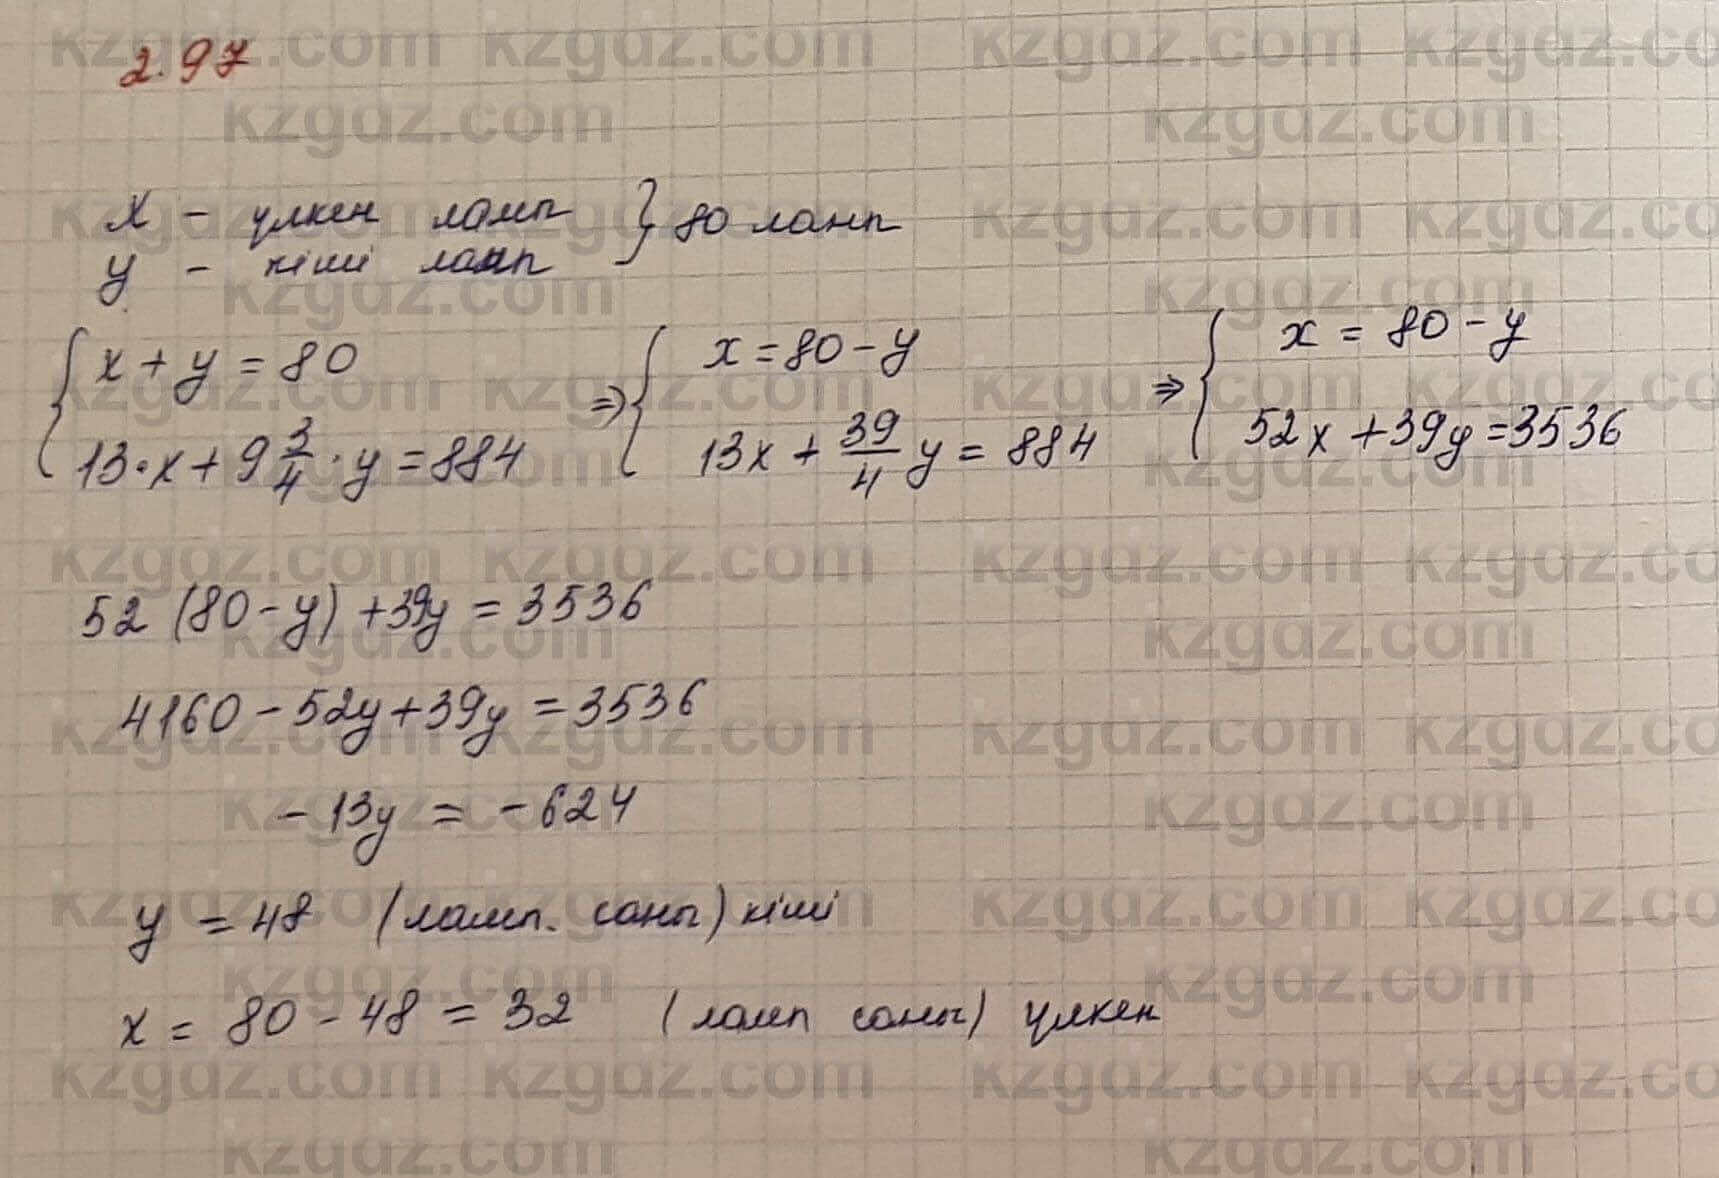 2.97
x - үлкен ламп } 80 ламп
y - кіші ламп
{ x + y = 80 => { x = 80 - y => { x = 80 - y
13·x + 9 3/4 · y = 884 13x + 39/4 y = 884 52x + 39y = 3536
52 (80 - y) + 39y = 3536
4160 - 52y + 39y = 3536
- 13y = - 624
y = 48 (ламп. саны) кіші
x = 80 - 48 = 32 (ламп саны) үлкен
kzgdz.com